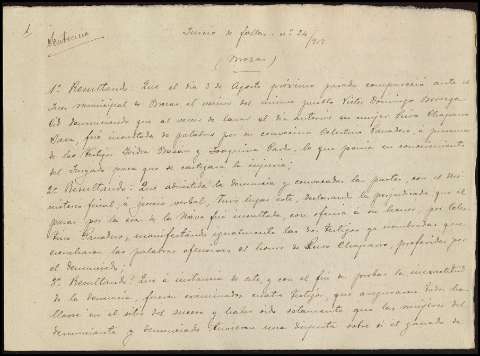 1
Sentencia
Juicio de faltas nº 24/
(Mozas)
1º Resultando: Que el día 3 de Agosto próximo pasado compareció ante el
Juez municipal de el vecino del mismo pueblo Victor Domingo
denunciando que al venir de lavar el día anterior su mujer Chaparro
fué insultada de palabra por su convecino Celestino á presencia
de los testigos Isidra y Joaquina Pardo, lo que ponía en conocimiento
del Juzgado para que se castigara la injuria;
2º Resultando: Que admitida la denuncia y convocadas las partes, con el Mi-
nisterio fiscal, á juicio verbal, tuvo lugar este, declarando la perjudicada que al
pasar por la era de la fué insultada, con ofensa á su honor, por Celes-
tino manifestando igualmente las dos testigos ya nombradas que
escucharon las palabras ofensivas al honor de Chaparro, proferidas por
el denunciado;
3º Resultando: Que á instancia de este, y con el fin de probar la inexactitud
de la denuncia, fueron examinados cuatro testigos, que aseguraron todos ha-
llarse en el sitio del suceso y haber oido solamente que las mujeres del
denunciante y denunciado tuvieron una disputa sobre si el ganado de